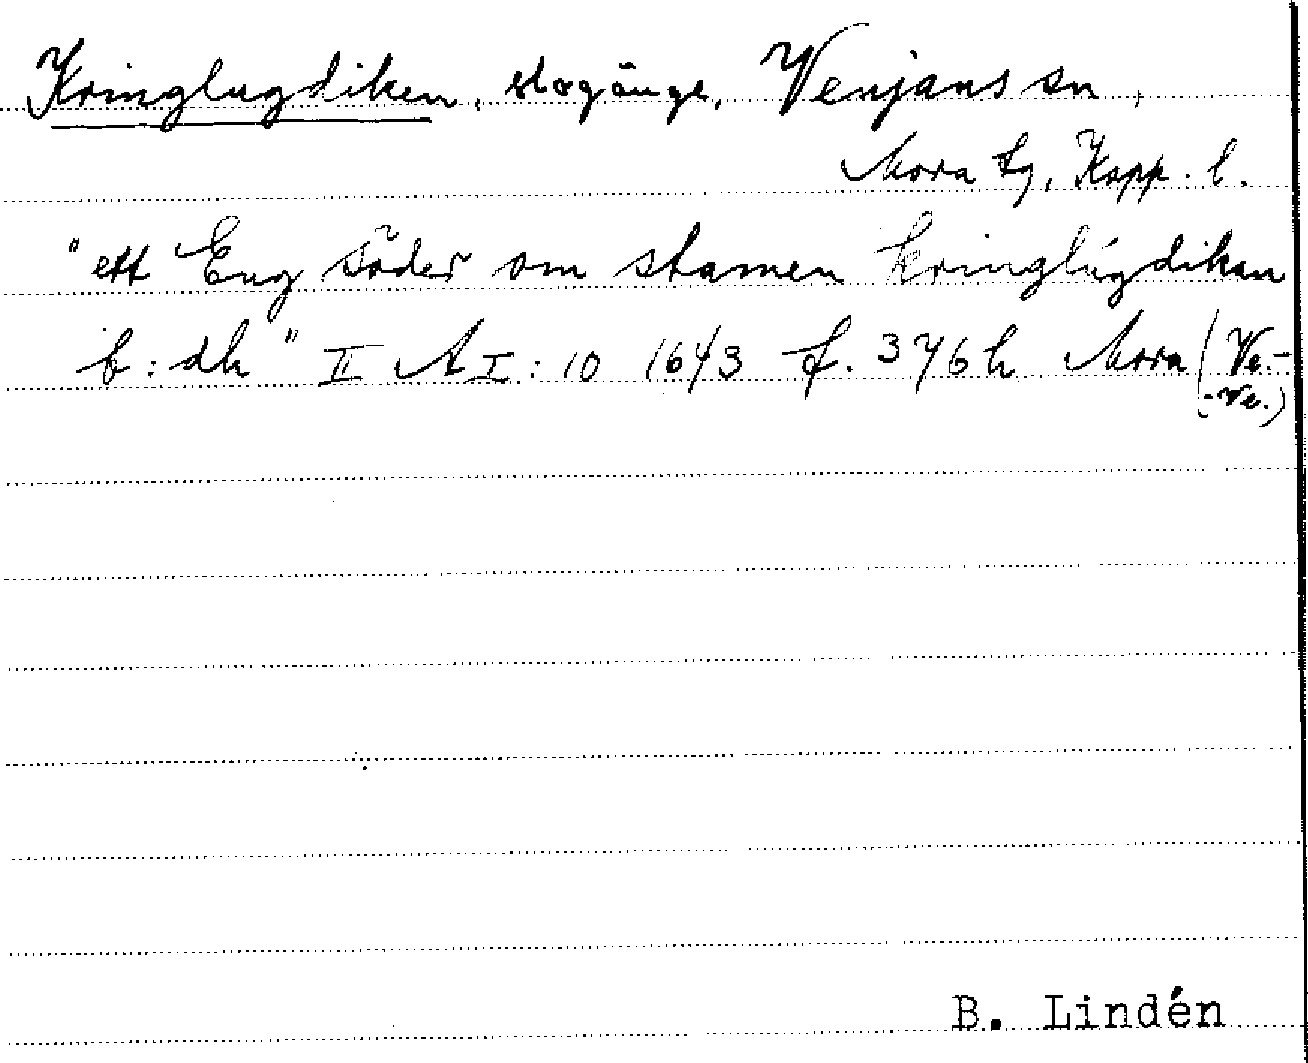 Kringlugdiken, slogänge, Venjans sn,
Mora tg, Kopp. l.
"ett Eng söder om stamen kringlugdikan
b:dh" II A I:10 1643 f. 376 h Mora (Ve.-
-Ve.)
B. Lindén